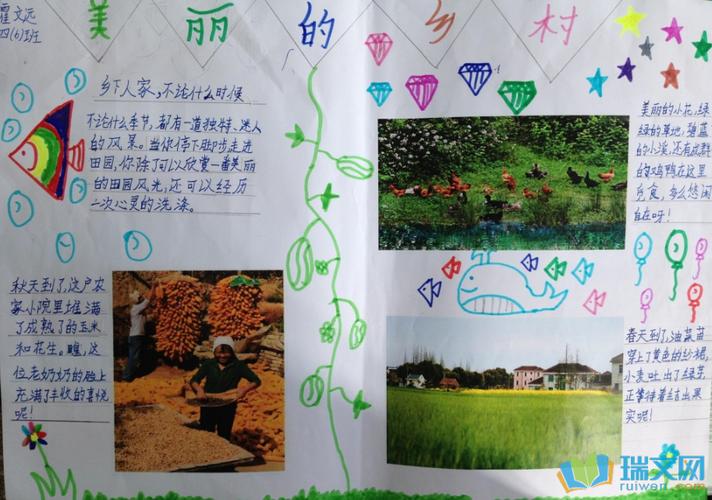 霍文远
四(6)班
美丽的乡村
乡下人家,不论什么时候
不论什么季节,都有一道独特、迷人
的风景。当你停下脚步走进
田园,你除了可以欣赏一番美丽
的田园风光,还可以经历
一次心灵的洗涤。
秋天到了,这户农
家小院里堆满
了成熟了的玉米
和花生。瞧,这
位老奶奶的脸上
充满了丰收的喜悦
呢!
美丽的小花,绿
绿的草地,碧蓝
的小溪,还有成群
的鸡鸭在这里
觅食,多么悠闲
自在呀!
春天到了,油菜苗
穿上了黄色的纱裙,
小麦吐出了绿芽
正等待着结出果
实呢!
瑞文网
ruiwen.com